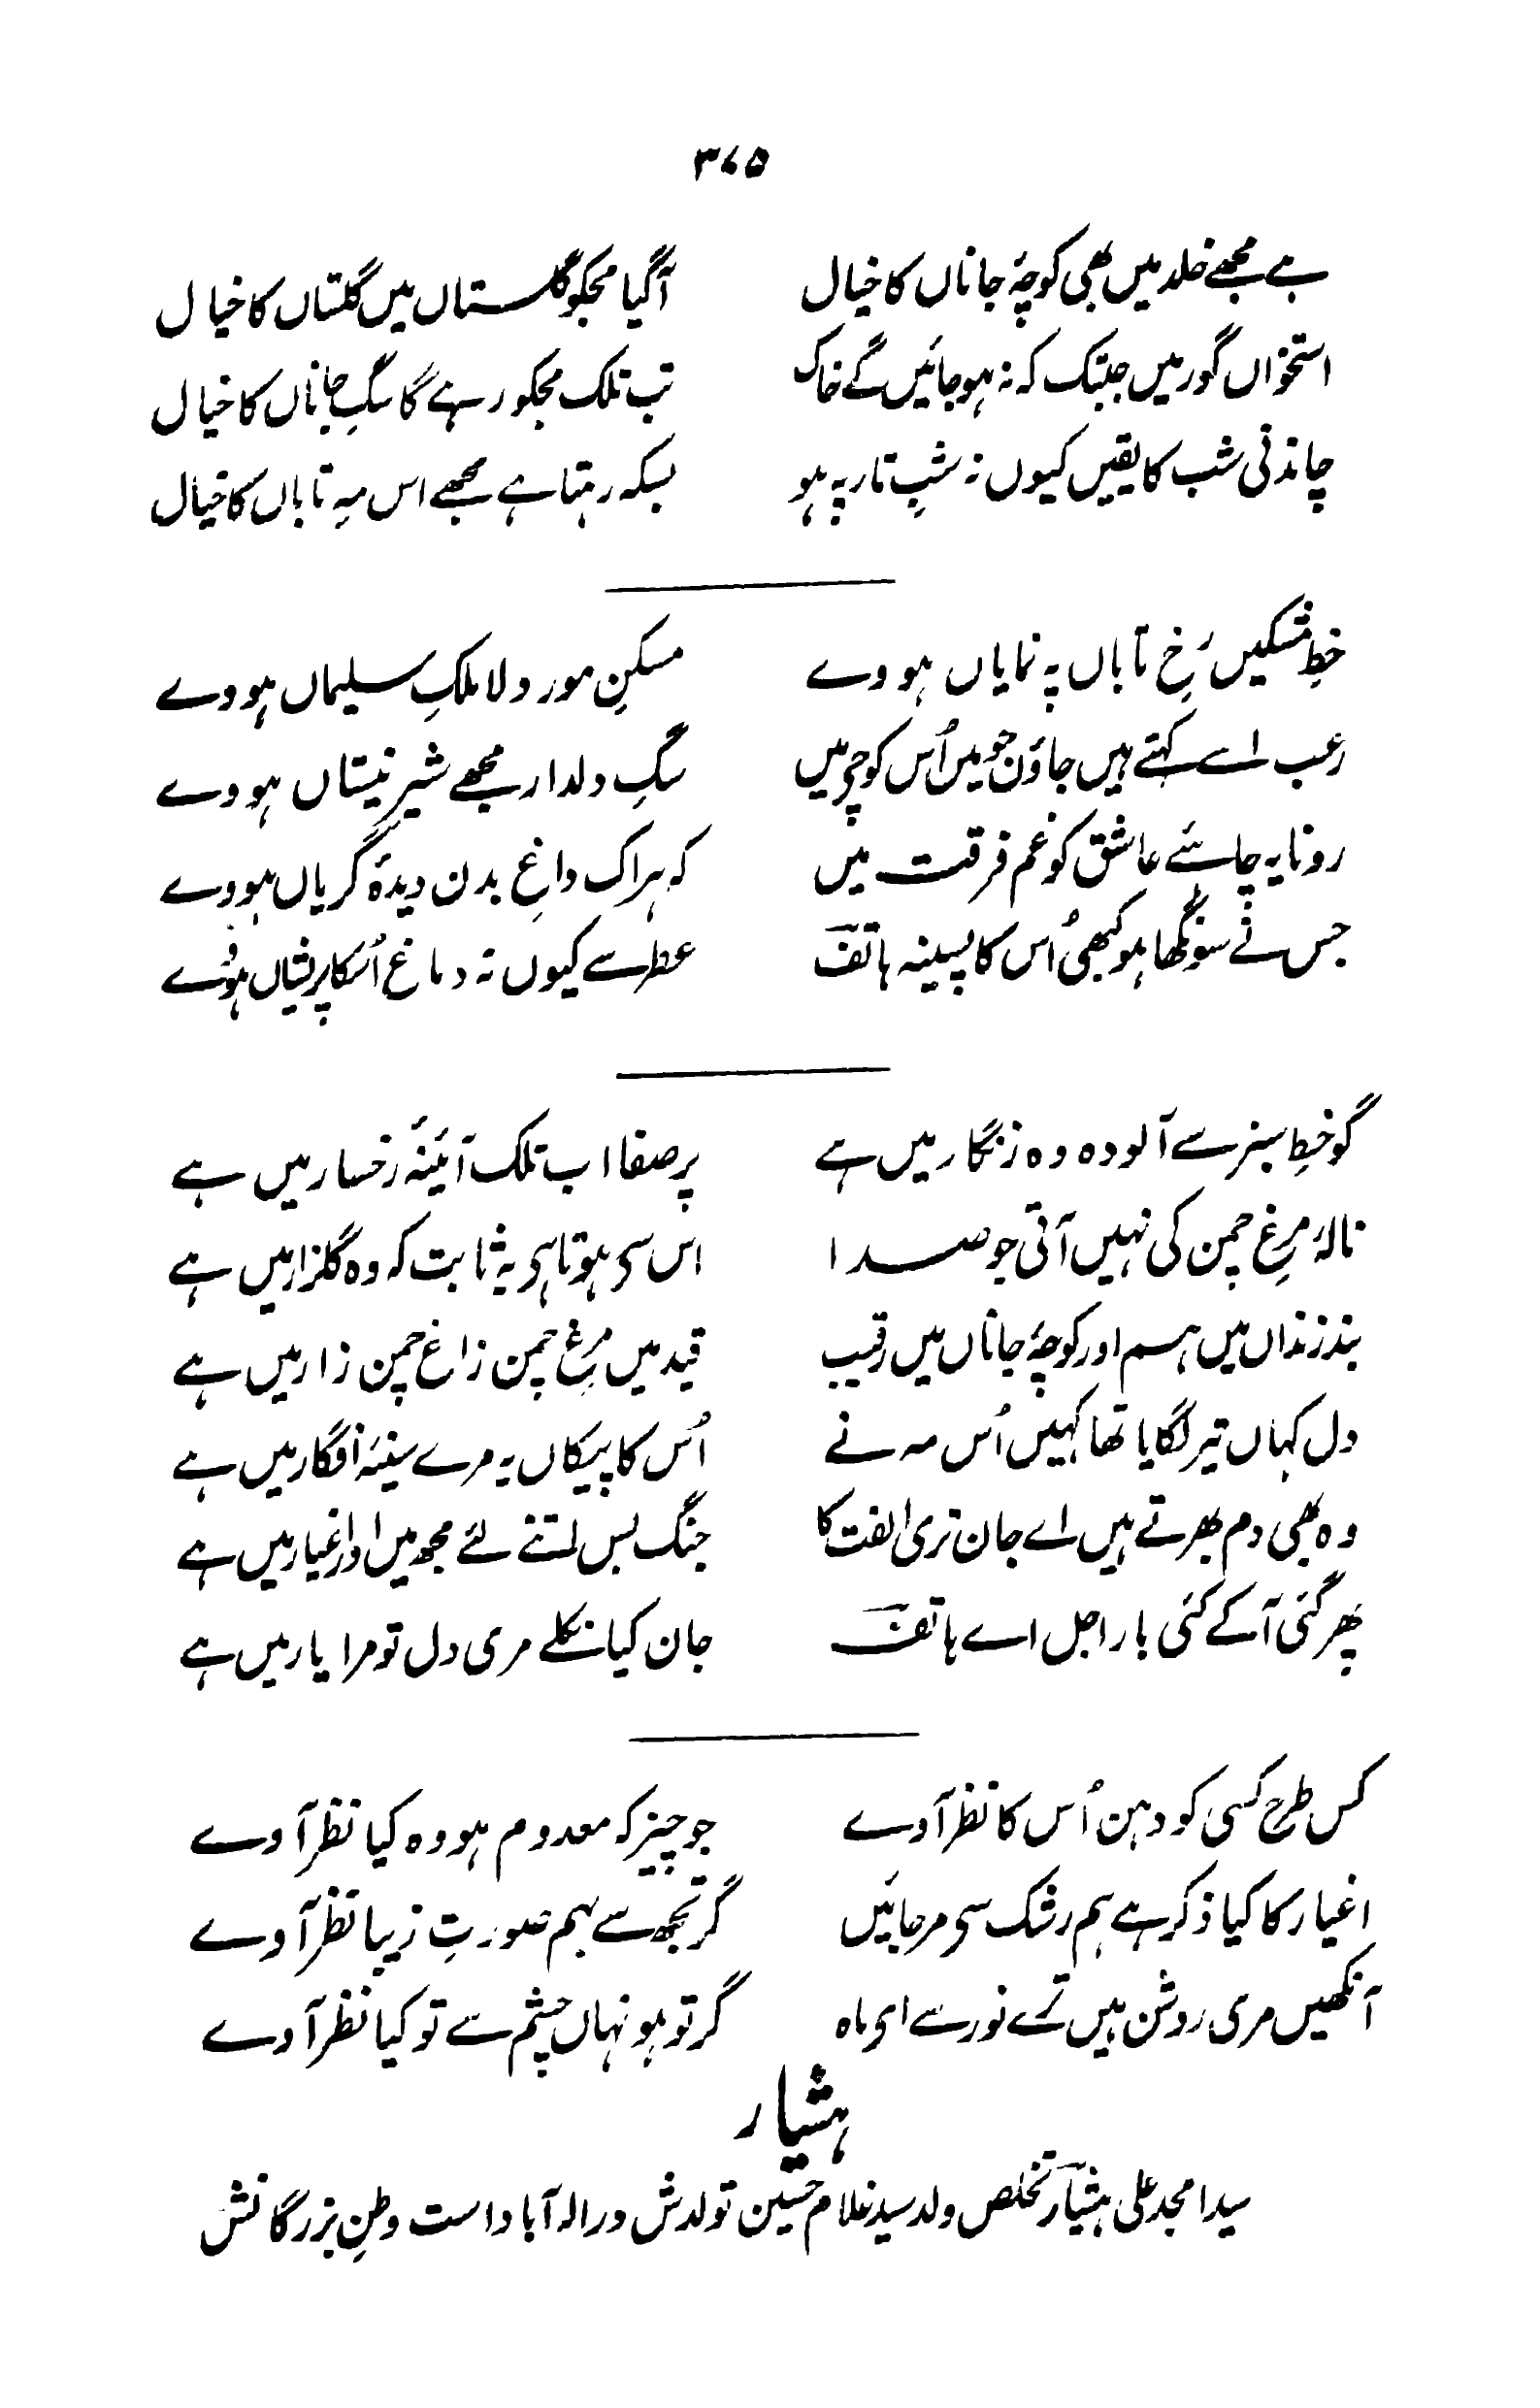 ۳۷۵
ہے مجھے خلد میں بھی کوچۂ جاناں کا خیال
آگیا مجکو گلستاں میں گلستاں کا خیال
استخواں گور میں جبتک کہ نہ ہوجائیں گے خاک
تب تلک مجکو رہے گا سگِ جاناں کا خیال
چاندنی شب کا یقیں کیوں نہ شبِ تار پہ ہو
بسکہ رہتا ہے مجھے اس مہِ تاباں کا خیال
خطِ مشکیں رُخِ تاباں پہ نمایاں ہووے
مسکنِ مور دلا ملکِ سلیماں ہووے
رعب اسے کہتے ہیں جاؤں جو میں اُس کوچہ میں
سگِ دلدار مجھے شیرِ نیستاں ہووے
رونا یہ چاہئے عاشق کو غمِ فرقت میں
کہ ہر اک داغِ بدن دیدۂ گریاں ہووے
جس نے سونگھا ہو کبھی اُس کا پسینہ ہاتف
عطر سے کیوں نہ دماغ اُسکا پریشاں ہووے
گو خطِ سبز سے آلودہ وہ زنگار میں ہے
پر صفا اب تلک آئینۂ رخسار میں ہے
نالۂ مرغِ چمن کی نہیں آتی جو صدا
اس سی ہوتا ہی یہ ثابت کہ وہ گلزار میں ہے
بند زنداں میں ہم اور کوچۂ جاناں میں رقیب
قید میں مرغِ چمن زاغ چمن زار میں ہے
دل کہاں تیر لگایا تھا کہیں اُس مہ نے
اُس کا پیکاں یہ مرے سینۂ افگار میں ہے
وہ بھی دم بھرتے ہیں اے جان تری الفت کا
جنگ بس اتنے لئے مجھ میں اور اغیار میں ہے
پھر گئی آکے کئی بار اجل اے ہاتف
جان کیا نکلے مری دل تو مرا یار میں ہے
کس طرح کسی کو دہن اُس کا نظر آوے
جو چیز کہ معدوم ہو وہ کیا نظر آوے
اغیار کا کیا ذکر ہے ہم رشک سی مرجائیں
گر تجھ سے بہم صورتِ زیبا نظر آوے
آنکھیں مری روشن ہیں ترے نور سے ای ماہ
گر تو ہو نہاں چشم سے تو کیا نظر آوے
ہشیار
سید امجد علی ہشیار تخلص ولد سید غلام حسین تولدش در الہ آباد است وطنِ بزرگانش